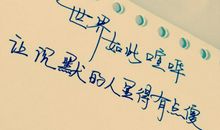 世界如此喧哗
让沉默的人显得有点傻